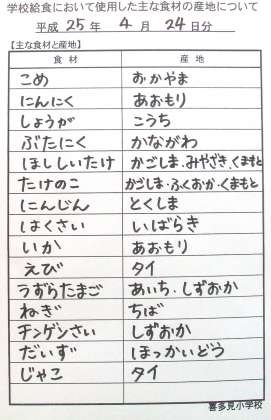 学校給食において使用した主な食材の産地について
平成 25 年 4 月 24 日分
【主な食材と産地】
食材 産地
こめ おかやま
にんにく あおもり
しょうが こうち
ぶたにく かながわ
ほししいたけ かごしま・みやざき・くまもと
たけのこ かごしま・ふくおか・くまもと
にんじん とくしま
はくさい いばらき
いか あおもり
えび タイ
うずらたまご あいち・しずおか
ねぎ ちば
チンゲンさい しずおか
だいず ほっかいどう
じゃこ タイ
喜多見小学校